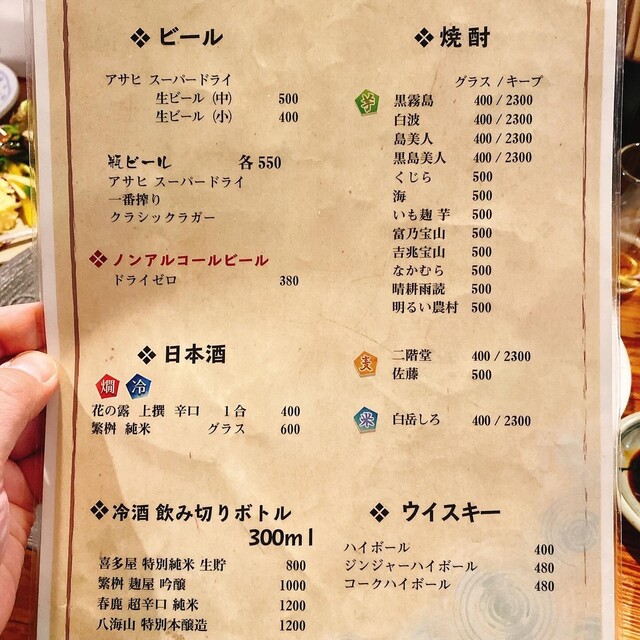 ❖ ビール
アサヒ スーパードライ
生ビール (中) 500
生ビール (小) 400
瓶ビール 各550
アサヒ スーパードライ
一番搾り
クラシックラガー
❖ ノンアルコールビール
ドライゼロ 380
❖ 日本酒
燗 冷
花の露 上撰 辛口 1合 400
繁桝 純米 グラス 600
❖ 冷酒 飲み切りボトル
300ml
喜多屋 特別純米 生貯 800
繁桝 麹屋 吟醸 1000
春鹿 超辛口 純米 1200
八海山 特別本醸造 1200
❖ 焼酎
グラス / キープ
芋 黒霧島 400 / 2300
白波 400 / 2300
島美人 400 / 2300
黒島美人 400 / 2300
くじら 500
海 500
いも麹 芋 500
富乃宝山 500
吉兆宝山 500
なかむら 500
晴耕雨読 500
明るい農村 500
麦 二階堂 400 / 2300
佐藤 500
米 白岳しろ 400 / 2300
❖ ウイスキー
ハイボール 400
ジンジャーハイボール 480
コークハイボール 480